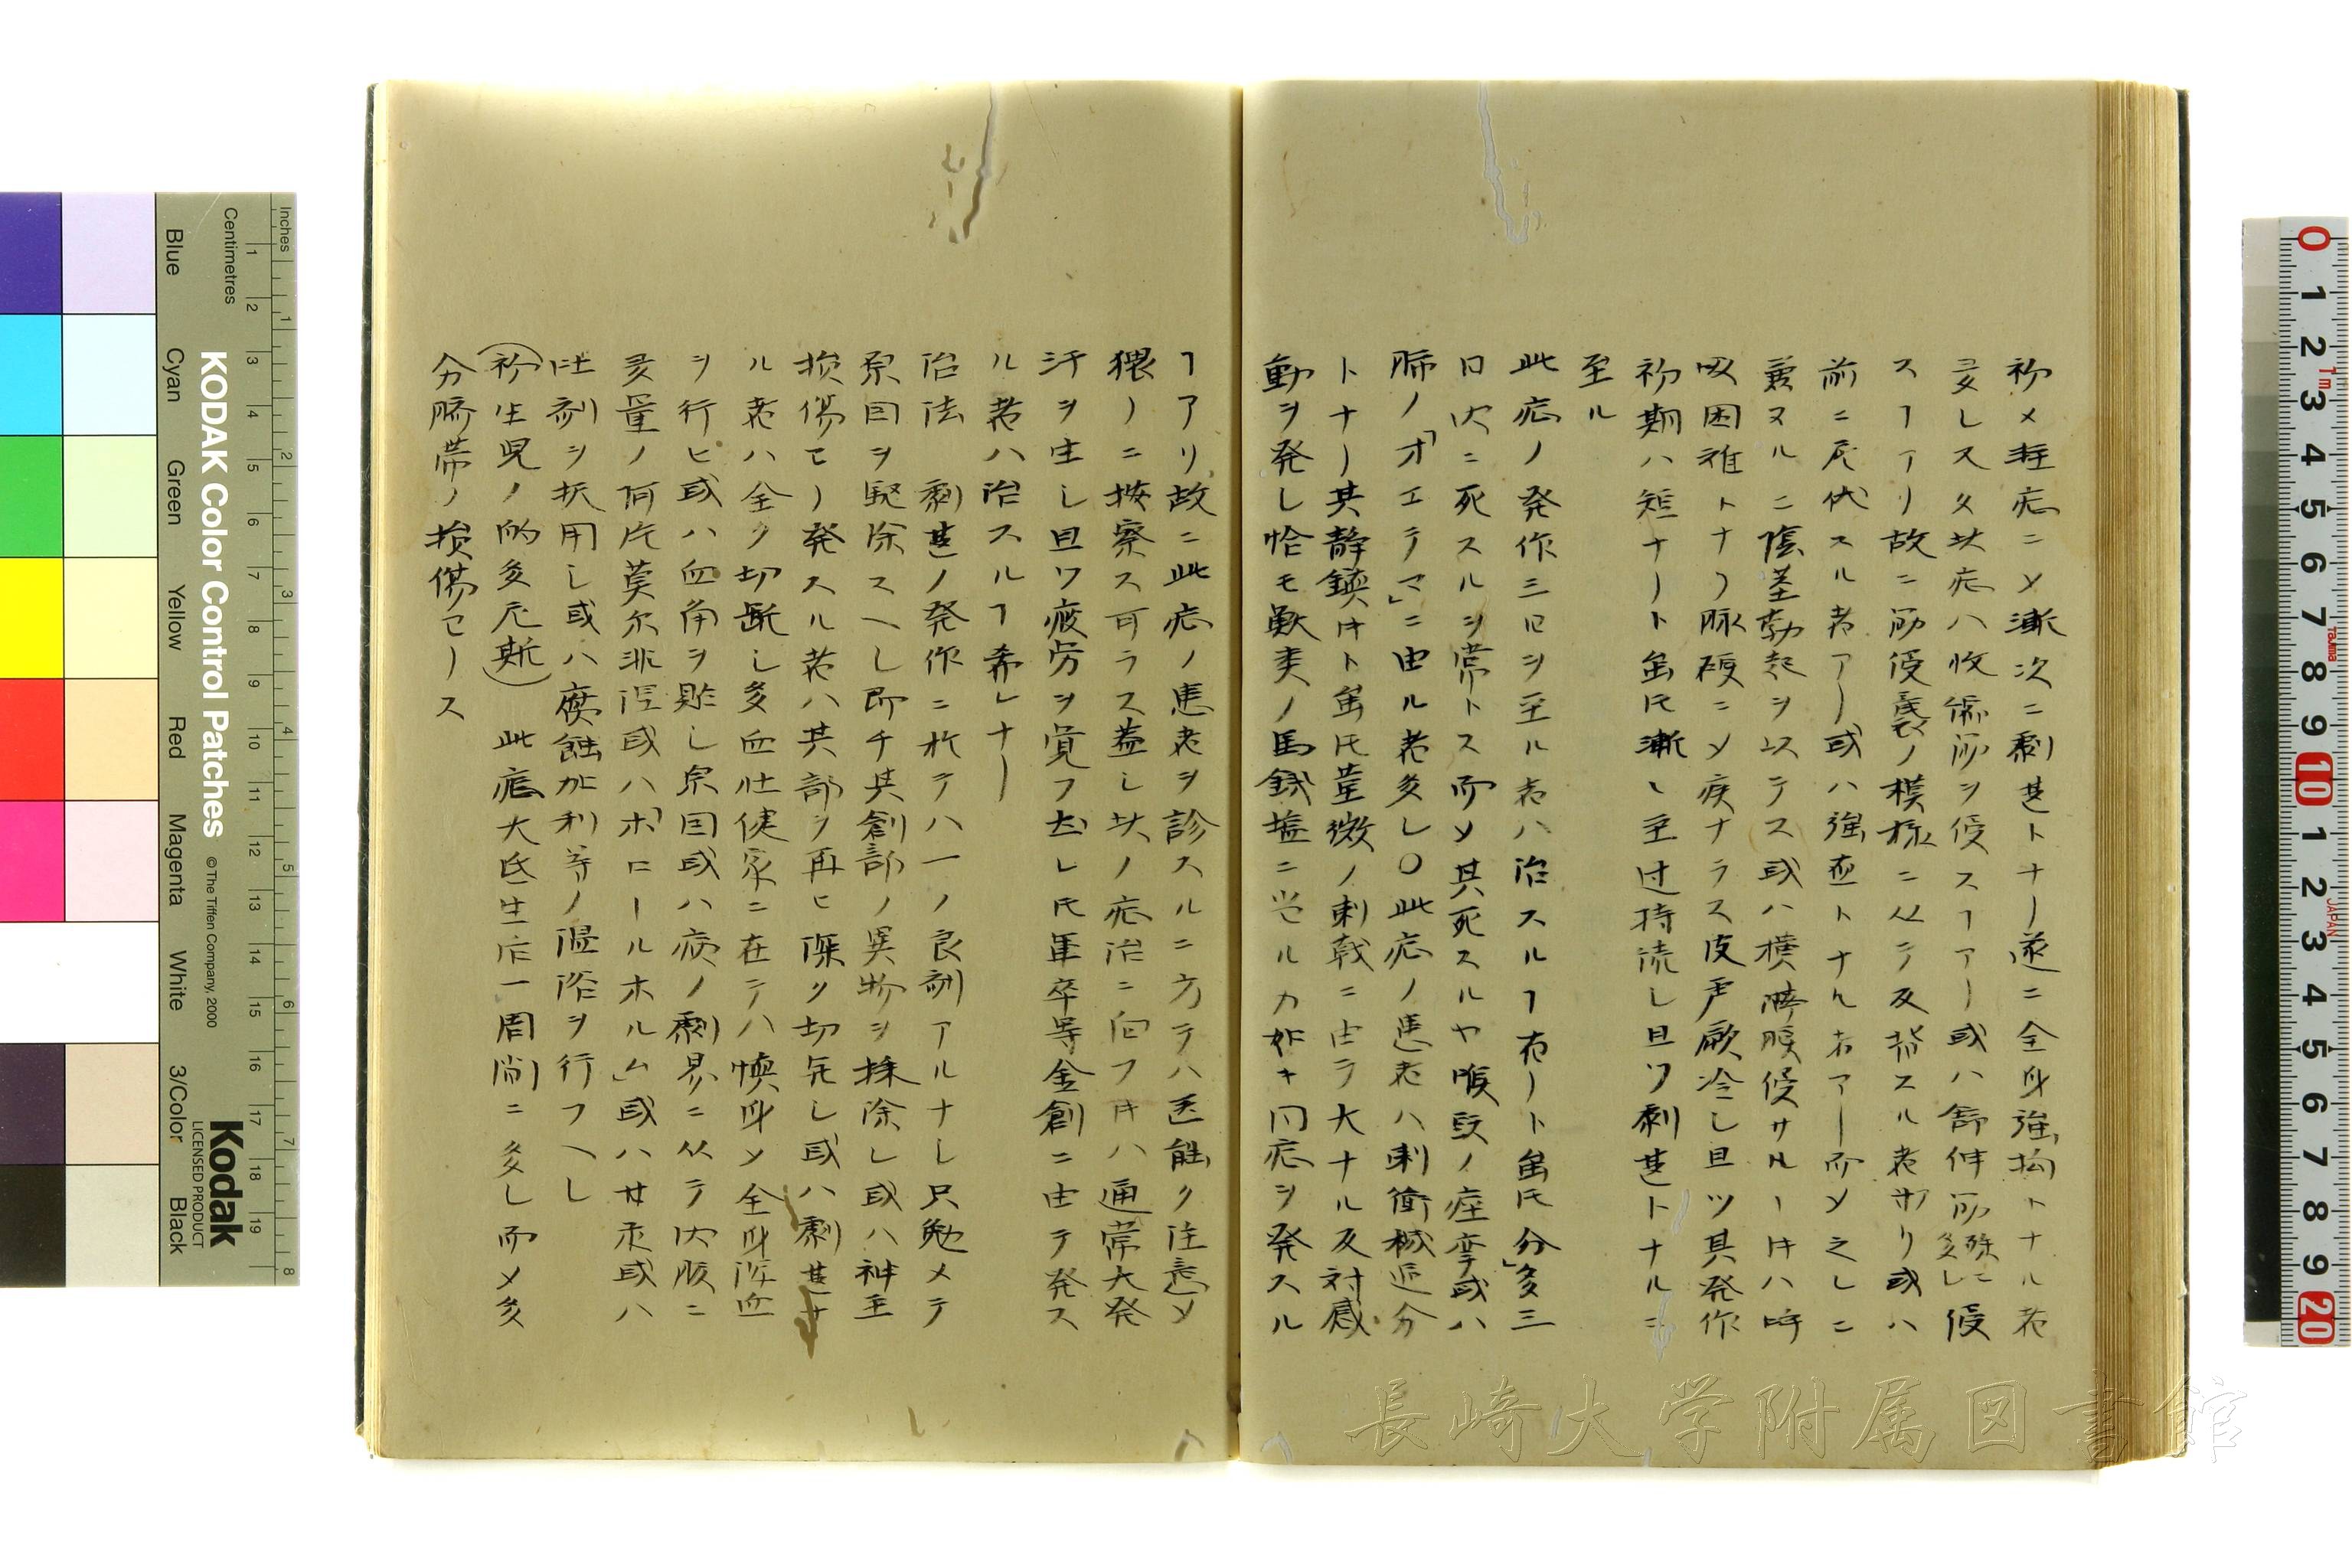 初メ軽症ニ〆漸次ニ劇甚トナリ遂ニ全身強拘トナル者
多シ又タ此症ハ收縮筋ヲ侵スヿアリ或ハ舒伸筋殊ニ多シ侵
スヿアリ故ニ筋侵襲ノ模様ニ从テ反背スル者アリ或ハ
前ニ屈伏スル者アリ或ハ強直トナル者アリ而〆之レニ
兼ヌルニ陰茎勃起ヲ以テス或ハ横膈膜侵サルヽ时ハ呼
吸困難トナリ脉硬ニ〆疾ナラス皮膚厥冷シ且ツ其発作
初期ハ短ナリト雖𪜈漸々至过持続シ且ツ劇甚トナルニ
至ル
此症ノ発作三四日ヲ至ル者ハ治スルヿ有リト雖𪜈分多三
日内ニ死スルヲ常トス而〆其死スルヤ喉頭ノ痙攣或ハ
肺ノ「オエテマ」ニ由ル者多シ〇此症ノ患者ハ刺衝機逆分
トナリ其静鎮时ト雖𪜈茎微ノ刺戟ニ由テ大ナル反対感
動ヲ発シ恰モ歇夷ノ馬銭塩ニ觉セルカ如キ同症ヲ発スル
ヿアリ故ニ此症ノ患者ヲ診スルニ方テハ医能ク注意〆
猥リニ按察ス可ラス蓋シ此ノ症治ニ向フ时ハ通常大発
汗ヲ生シ且ツ疲労ヲ覚フ然レ𪜈軍卒等金創ニ由テ発ス
ル者ハ治スルヿ希レナリ
治法 劇甚ノ発作ニ於テハ一ノ良剤アルナシ只勉メテ
原因ヲ駆除スヘシ即チ其創部ノ異物ヲ採除シ或ハ神圣
損傷セリ発スル者ハ其部ヲ再ヒ深ク切断シ或ハ劇甚ナ
ル者ハ全ク切断シ多血壮健家ニ在テハ懊身〆全身泻血
ヲ行ヒ或ハ血角ヲ貼シ原因或ハ病ノ劇易ニ从テ内服ニ
多量ノ阿片莫尔非涅或ハ「ホロールホルム」或ハ甘汞或ハ
吐剤ヲ択用シ或ハ腐蝕加利等ノ温浴ヲ行フヘシ
(初生児ノ的多尼斯) 此症大底生后一周间ニ多シ而〆多
分臍帯ノ損傷セリス
KODAK Color Control Patches
© The Tiffen Company, 2000
Kodak
LICENSED PRODUCT
Inches
Centimetres
Blue
Cyan
Green
Yellow
Red
Magenta
White
3/Color
Black
長崎大学附属図書館